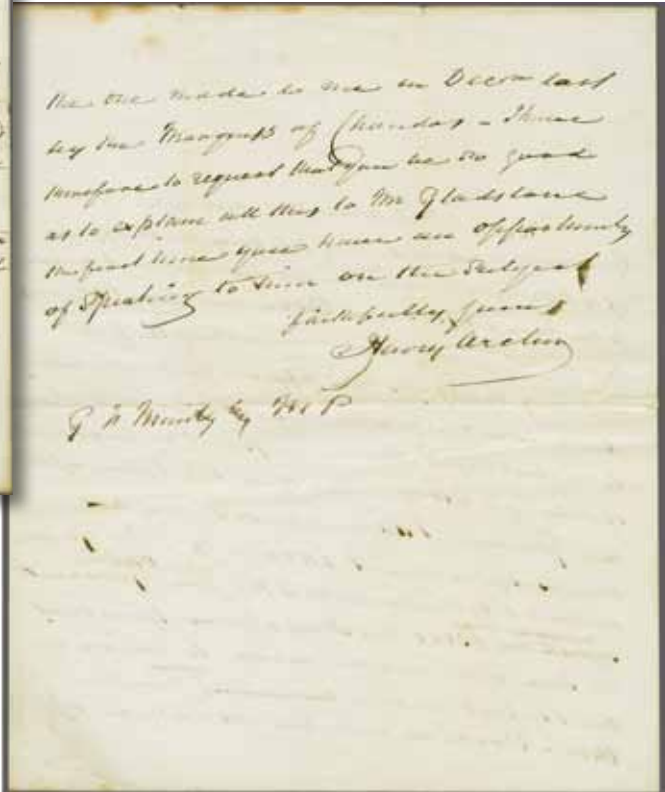 the one made to me in Decem last
by the Marquis of Chandos - I have
therefore to request that you be so good
as to explain all this to Mr Gladstone
the first time you have an opportunity
of Speaking to him on the Subject
faithfully yours
Henry Archer
G F Muntz Esq M P